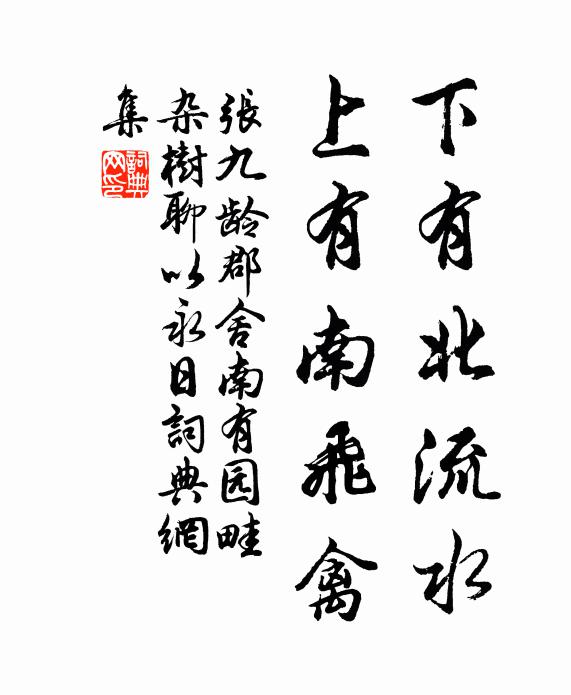 下有北流水
上有南飛禽
張九龄郡舍南有园畦
杂樹聊以永日詞典網
集
詞典網印